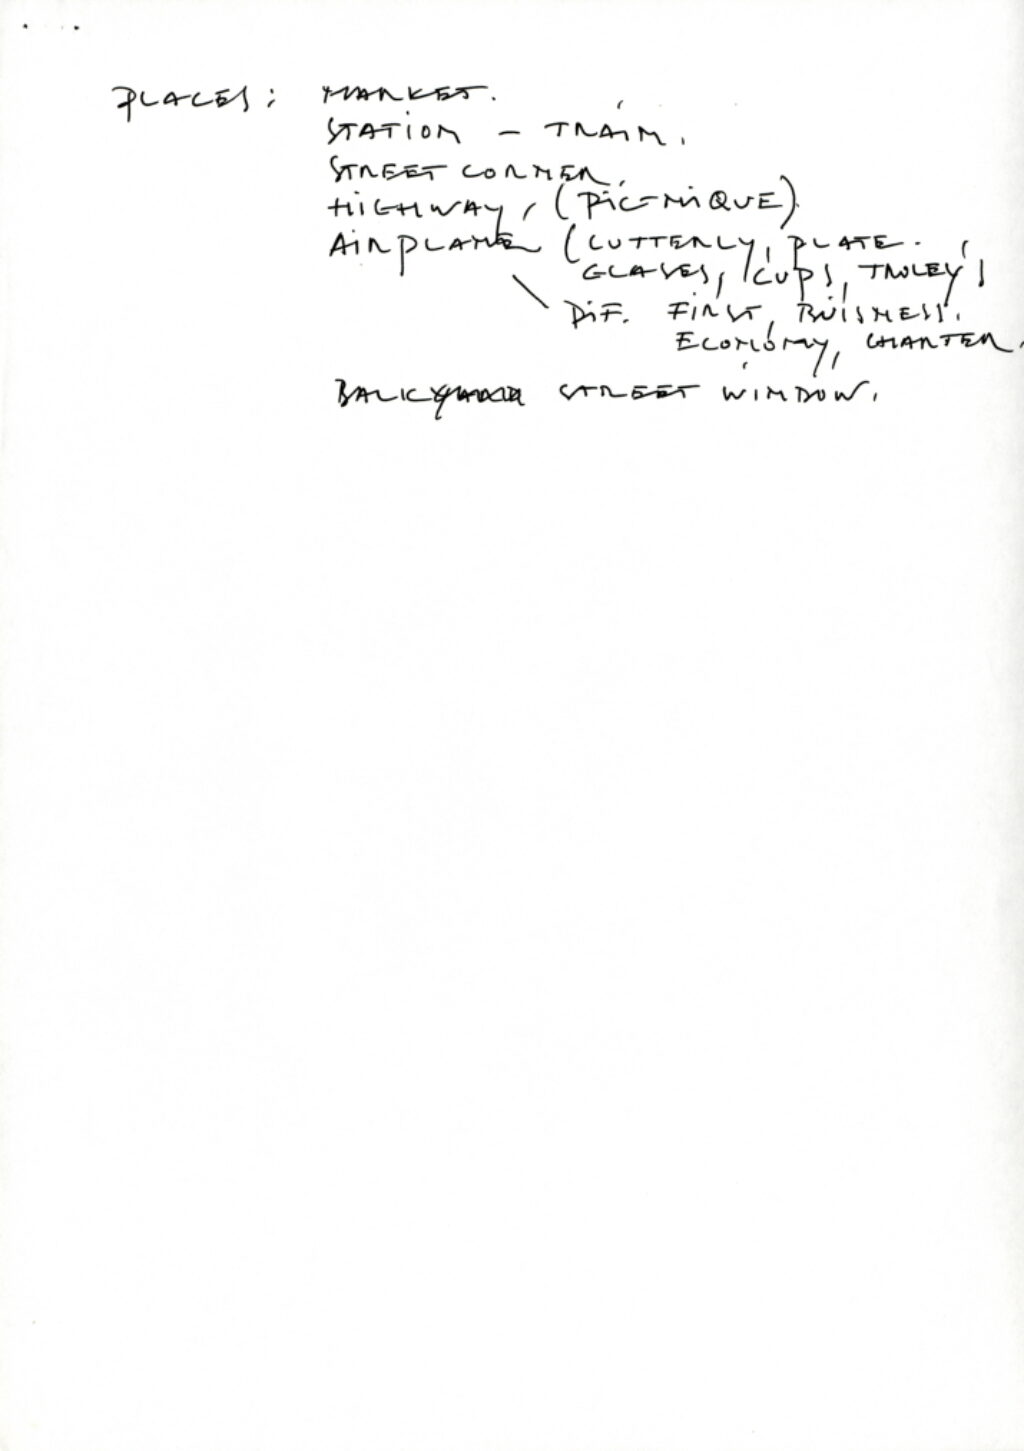 PLACES: MARKET.
STATION - TRAIN.
STREET CORNER.
HIGHWAY, (PIC-NIQUE)
AIRPLANE (CUTTERLY, PLATE.
GLASES, CUPS, TROLEY'S
DIF. FIRST, BUISNESS.
ECONOMY, CHARTER.
BACK STREET WINDOW.